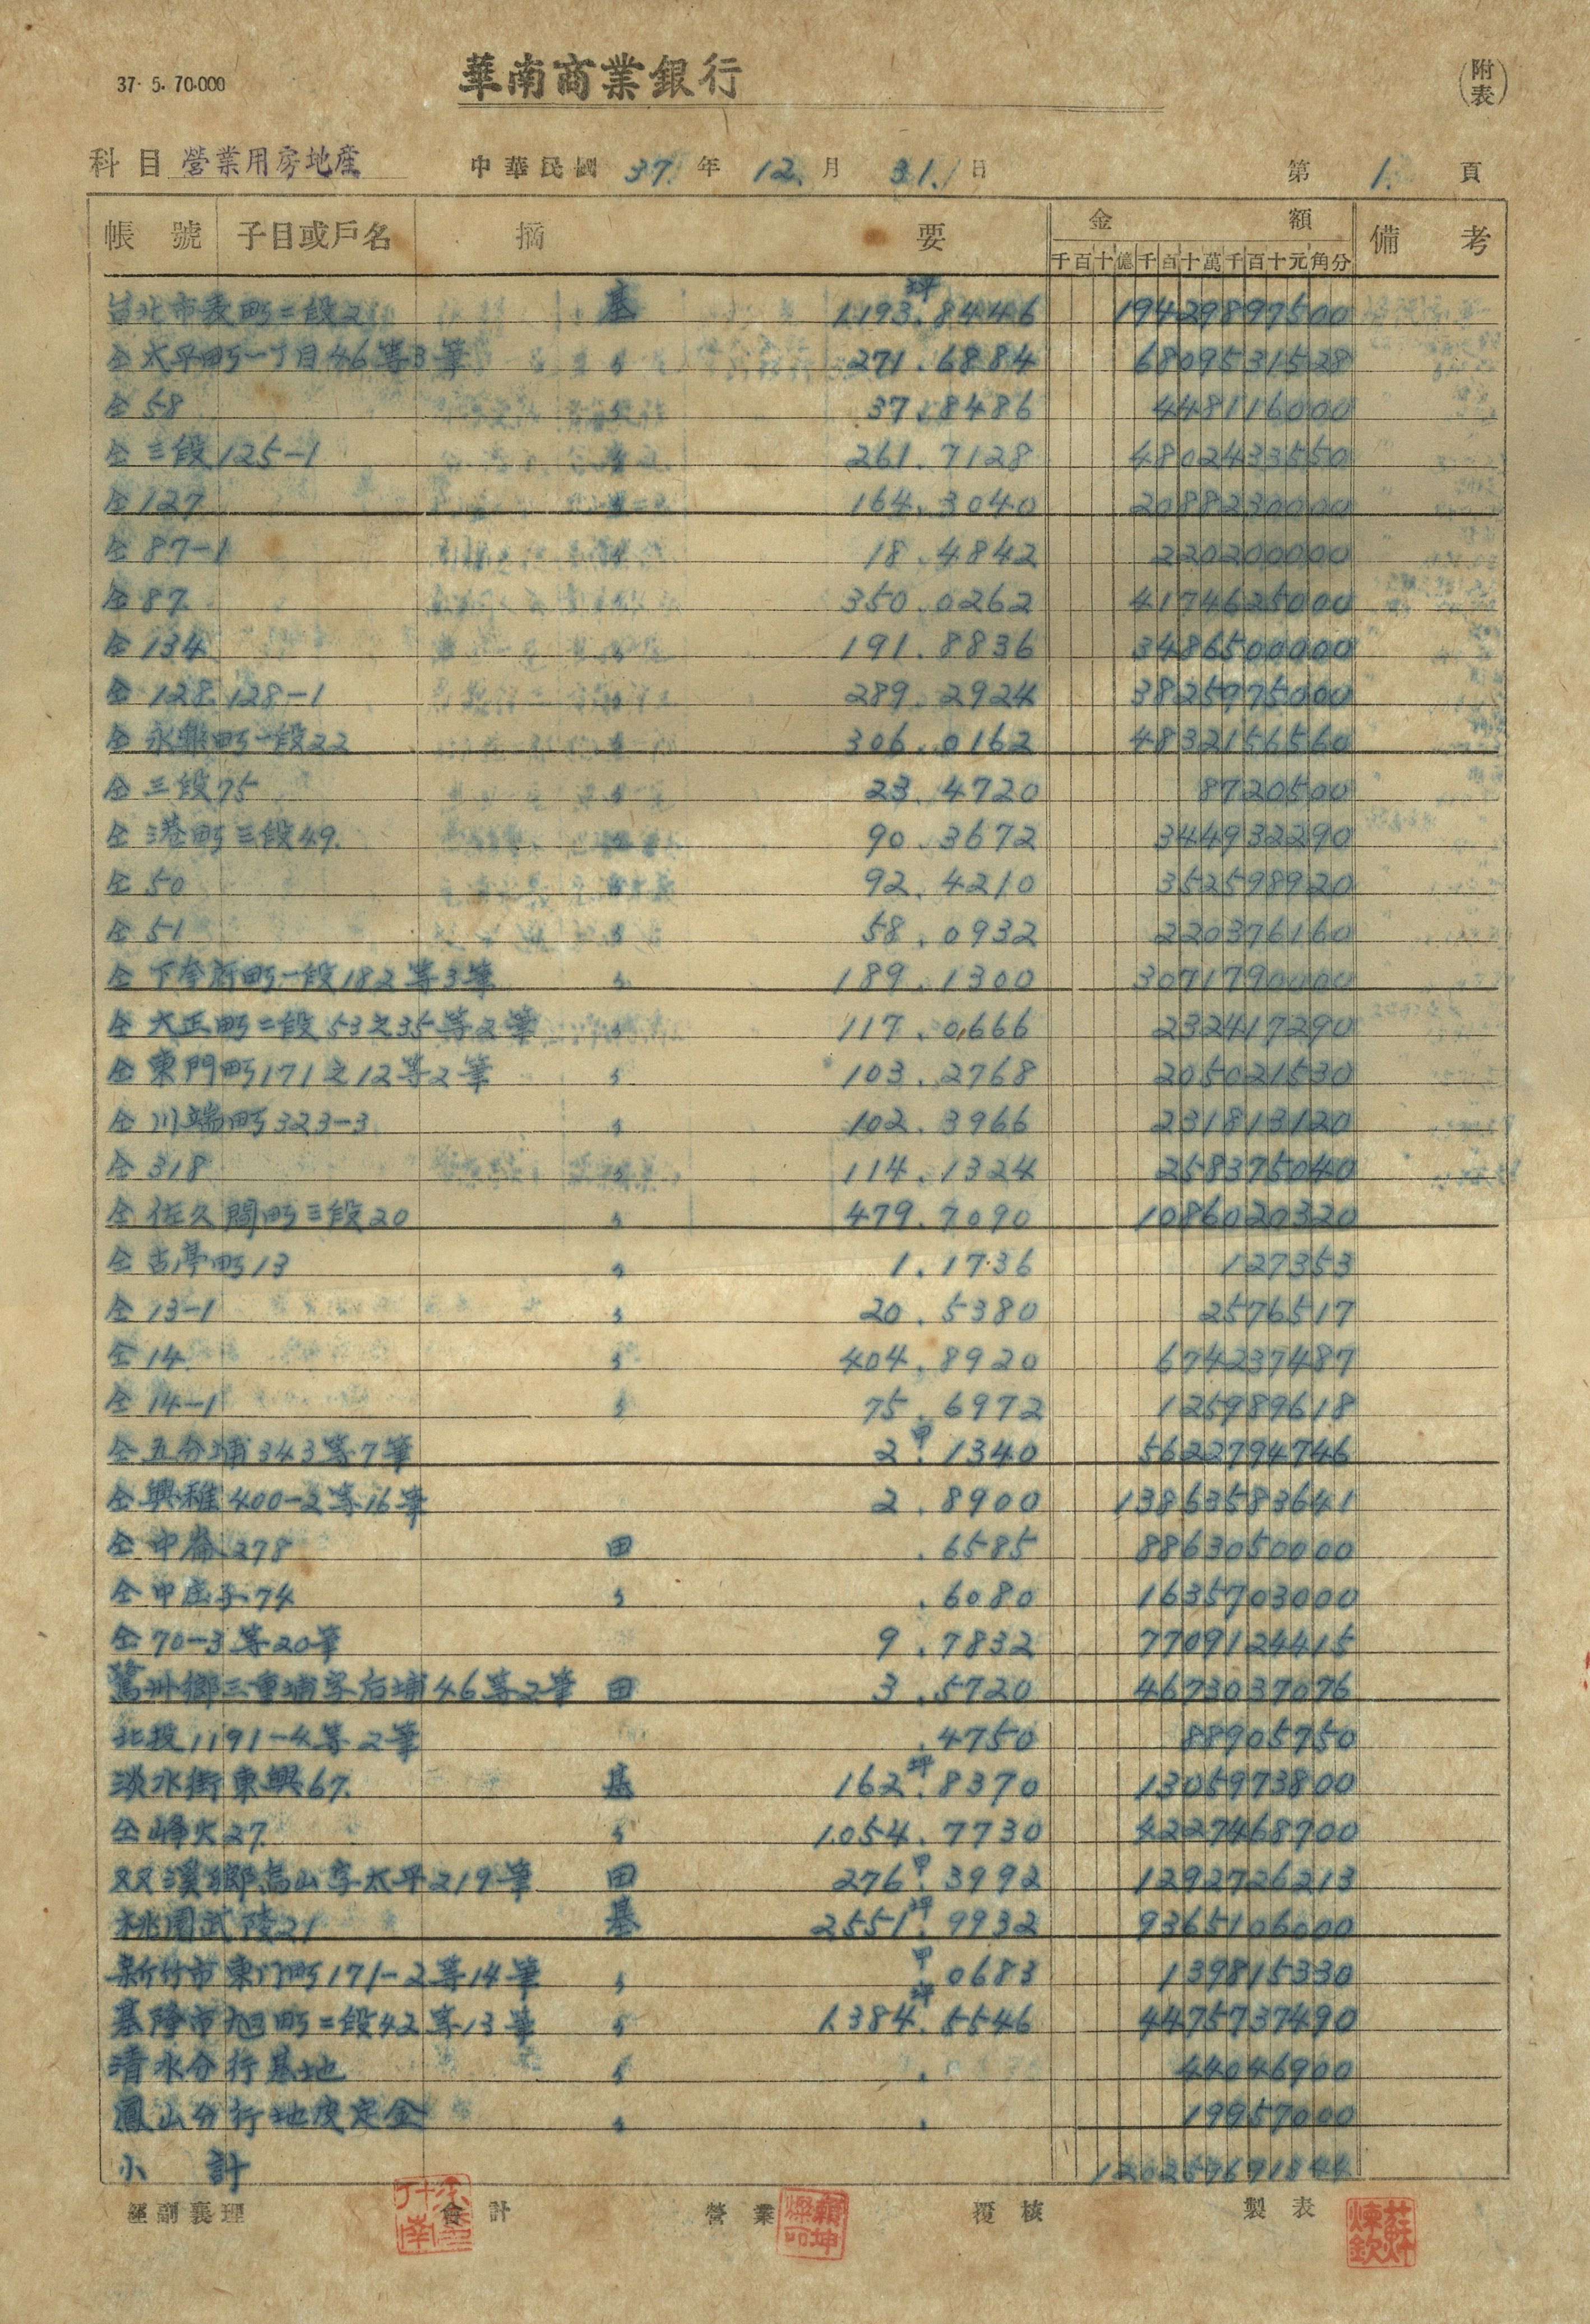 37. 5. 70.000
華南商業銀行
(附表)
科目 營業用房地產 中華民國 37. 年 12. 月 31. 日 第 1. 頁
帳號 子目或戶名 摘要 金額 備考
千百十億千百十萬千百十元角分
台北市表町二段2 基 1.193坪.8446 19429897500
仝太平町一丁目46等3筆 〃 271.6884 6809531528
仝58 〃 37.8486 448116000
仝三段125-1 〃 261.7128 4802433550
仝127 〃 164.3040 2088230000
仝87-1 〃 18.4842 220200000
仝87 350.0262 4174625000
仝134 〃 191.8836 3486500000
仝128.128-1 〃 289.2924 3825975000
仝永樂町一段22 〃 306.0162 4832156560
仝三段75 〃 23.4720 8720500
仝港町三段49. 〃 90.3672 344932290
仝50 〃 92.4210 352598920
仝51 〃 58.0932 220376160
仝下奎府町一段182等3筆 〃 189.1300 3071790000
仝大正町二段53之35等2筆 〃 117.0666 232417290
仝東門町171之12等2筆 〃 103.2768 205021530
仝川端町323-3 〃 102.3966 231813120
仝318 〃 114.1324 258375040
仝佐久間町三段20 〃 479.7090 1086020320
仝古亭町13 〃 1.1736 127353
仝13-1 〃 20.5380 2576517
仝14 〃 404.8920 674237487
仝14-1 〃 75.6972 125989618
仝五分埔343等7筆 2甲.1340 5622794746
仝興雅400-2等16筆 2.8900 13863583641
仝中崙278 田 .6585 8863050000
仝中庄子74 〃 .6080 1635703000
仝70-3等20筆 9.7832 7709124415
鷺州鄉三重埔字后埔46等2筆 田 3.5720 4673037076
北投1191-4等2筆 .4750 88905750
淡水街東興67. 基 162坪.8370 1305973800
仝峰火27 〃 1.054.7730 4227468700
双溪鄉烏山字太平219筆 田 276甲.3992 1292726213
桃園武陵21 基 2551坪.9932 9365106000
新竹市東门町171-2等14筆 〃 甲.0683 139815330
基隆市旭町二段42等13筆 〃 1.384坪.5546 4475737490
清水分行基地 〃 . 44046900
鳳山分行地皮定金 〃 . 19957000
小計 120257691844
經副襄理 會計 營業 覆核 製表
賴坤燦印
蘇煉欽